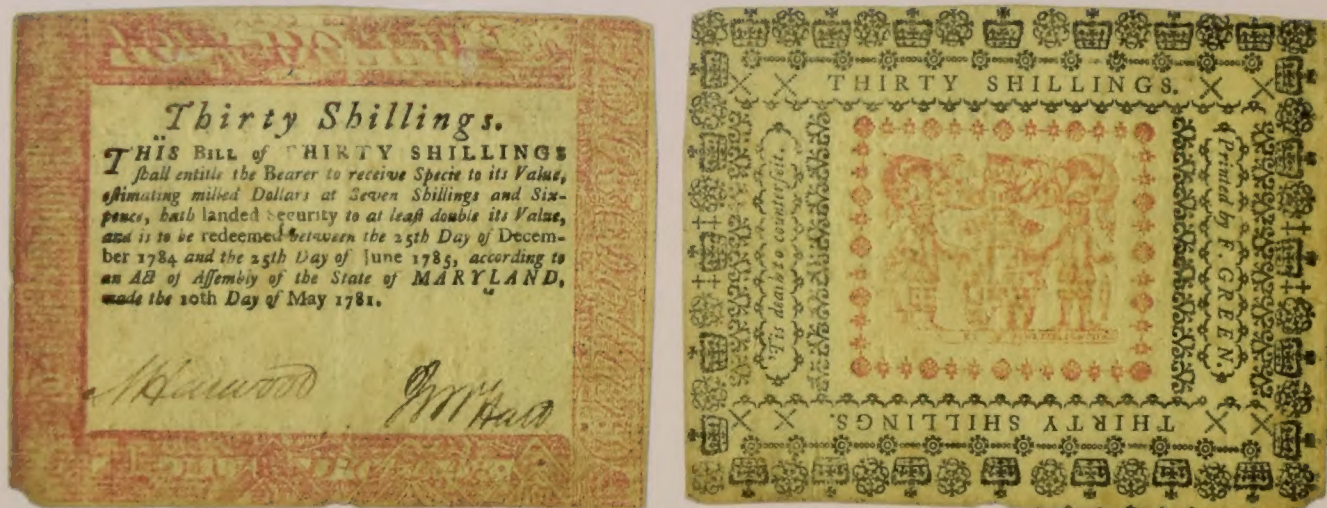 Thirty Shillings.
THÏS BILL of THIRTY SHILLINGS
ſhall entitle the Bearer to receive Specie to its Value,
eſtimating milled Dollars at Seven Shillings and Six-
pence, hath landed Security to at leaſt double its Value,
and is to be redeemed between the 25th Day of Decem-
ber 1784 and the 25th Day of June 1785, according to
an Act of Aſſembly of the State of MARYLAND,
made the 10th Day of May 1781.
NHarwood
THIRTY SHILLINGS.
'Tis death to counterfeit.
Printed by F. GREEN.
THIRTY SHILLINGS.